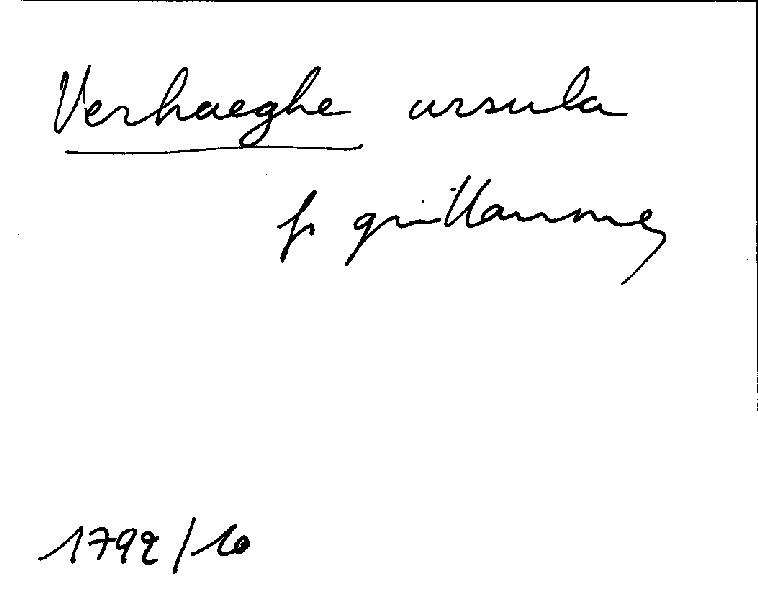 Verhaeghe ursula
fs guillaume
1792/10